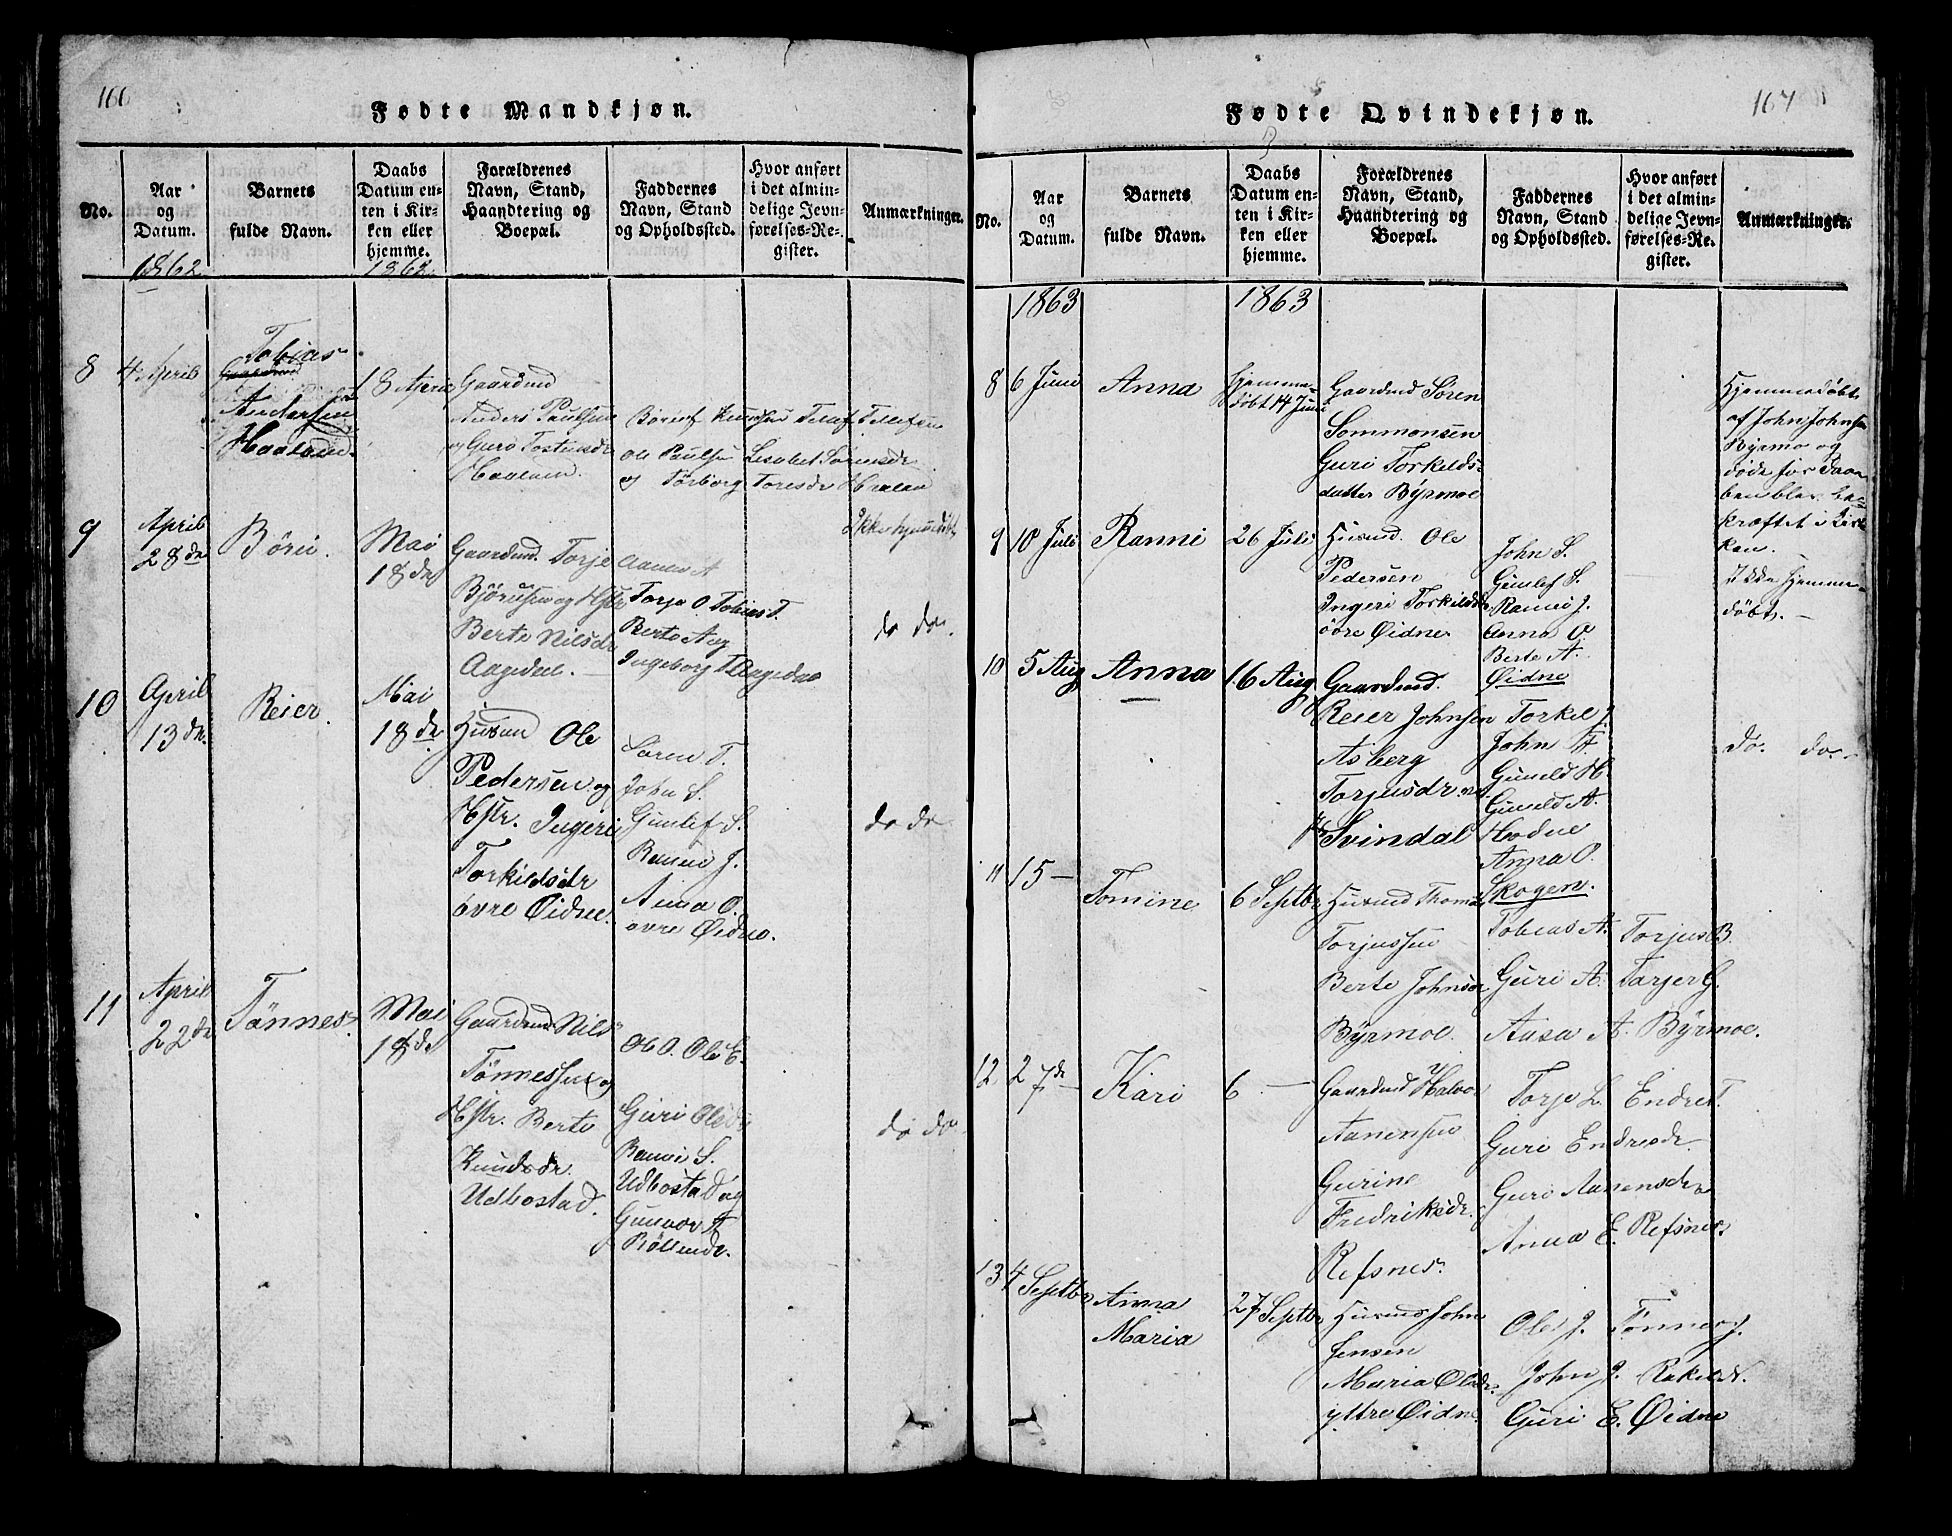 166
Fødte Mandkjøn.
No.
Aar og Datum.
Barnets fulde Navn.
Daabs Datum enten i Kirken eller hjemme.
Forældrenes Navn, Stand, Haandtering og Boepæl.
Faddernes Navn, Stand og Opholdssted.
Hvor anført i det almindelige Jevnførelses-Register.
Anmærkninger.
1862
1862
8
4 April
Tobias
Andersen
Haaland
18 April
Gaardmd
Anders Paulsen
og Guro Tostensdr
Haaland.
Børuf Knudsen Tellef Tellefsen
Ole Paulsen Lisabet Sørensdr
og Torborg Toresdr Haaland
Ikke hjemmedøbt
9
April
28de
Børu.
Mai
18de
Gaardmd. Torje
Bjørusen og Hstr
Berte Nilsdr
Aagedal.
Aanen A
Torje O. Tobias T.
Berte Aag
Ingeborg T Aagedal
do do.
10
April
13de.
Reier.
Mai
18de
Husmd Ole
Pedersen og
Hstr. Ingeri
Torkildsdr
övre Öidne.
Søren T.
John S.
Gunlef S.
Ranni J.
Anna O.
øvre Øidne.
do do
11
April
22de
Tönnes.
Mai
18de
Gaardmd Nils
Tönnessen og
Hstr. Berte
Knudsdr.
Udbostad.
Ole O. Ole E.
Guri Olsdr
Ranni S.
Udbostad og
Gunvor A
Röllend.
do do.
167
Fødte Qvindekjøn.
No.
Aar og Datum.
Barnets fulde Navn.
Daabs Datum enten i Kirken eller hjemme.
Forældrenes Navn, Stand, Haandtering og Boepæl.
Faddernes Navn, Stand og Opholdssted.
Hvor anført i det almindelige Jevnførelses-Register.
Anmærkninger.
1863
1863
8
6 Juni
Anna
Hjemme-
døbt 14 Juni
Gaardmd Søren
Sommonsen
Guri Torkilds-
datter Byrmoe
Hjemmedöbt
af John Johnsen
Byrmo og
døde før Daa-
ben blev be-
kræftet i Kir-
ken.
9
10 Juli
Ranni
26 Juli
Husmd. Ole
Pedersen
Ingeri Torkildsdr
övre Öidne
John S.
Gunlef S.
Ranni J.
Anna O
Berte A.
Øidne
Ikke hjemme-
døbt.
10
5 Aug
Anna
16 Aug
Gaardmd.
Reier Johnsen
Asberg
Torjusdr.
Svindal
Torkel J.
John A.
Guneld H
Guneld A.
Hodne
Anna O.
Skogen.
do. do.
11
15
Tomine
6 Septbr
Husmd Thomas
Torjussen
Berte Johnsdr
Byrmoe.
Tobias A. Torjus B.
Guri A. Tarjer G.
Aasa A. Byrmoe.
12
27de
Kari
6
Gaardmd Halvor
Aanensen
Gurine
Fredriksdr.
Refsnes.
Torje L. Endre T.
Guri Endresdr
Guri Aanensdr
Anna E. Refsnes
13
4 Septbr
Anna
Maria
27 Septbr
Husmd John
Jensen
Maria Olsdr.
yttre Øidne
Ole J. Tønnes J.
John J. Rakel
Guri E. Øidne